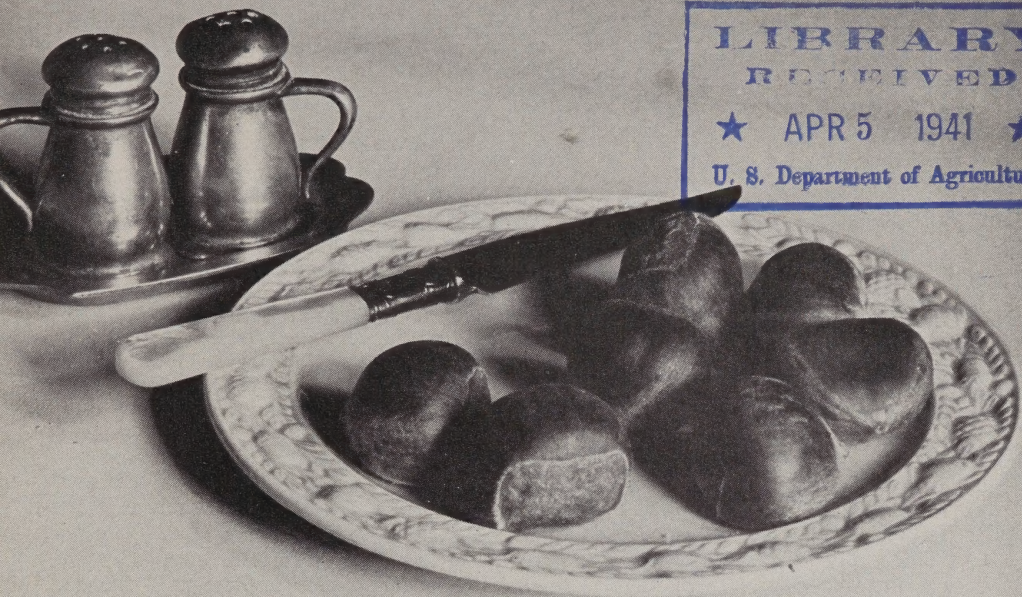 LIBRARY
RECEIVED
★ APR 5 1941 ★
U. S. Department of Agricultu